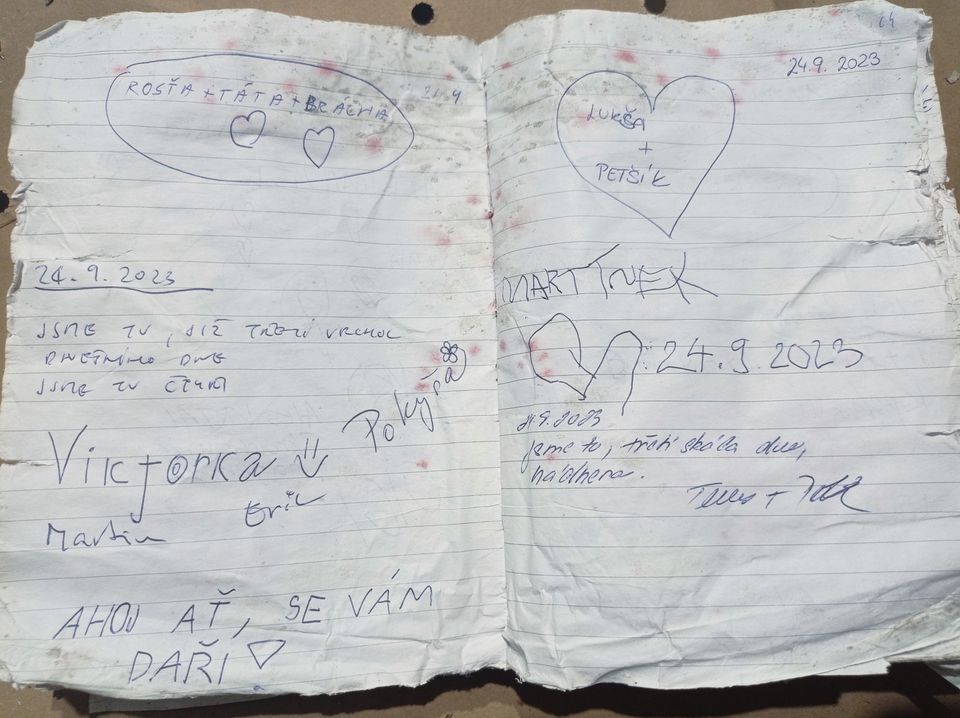 ROSŤA + TÁTA + BRÁCHA
24.9.2023
JSME TU, JIŽ TŘETÍ VRCHOL
DNEŠNÍHO DNE
JSME TU ČTYŘI
Pokýňa
Viktorka
Martin
Eric
AHOJ AŤ, SE VÁM
DAŘI
64
24.9.2023
LUKŠA
+
PETŠÍK
MARTÍNEK
24.9.2023
24.9.2023
jsme tu, třetí skála dne,
nádhera.